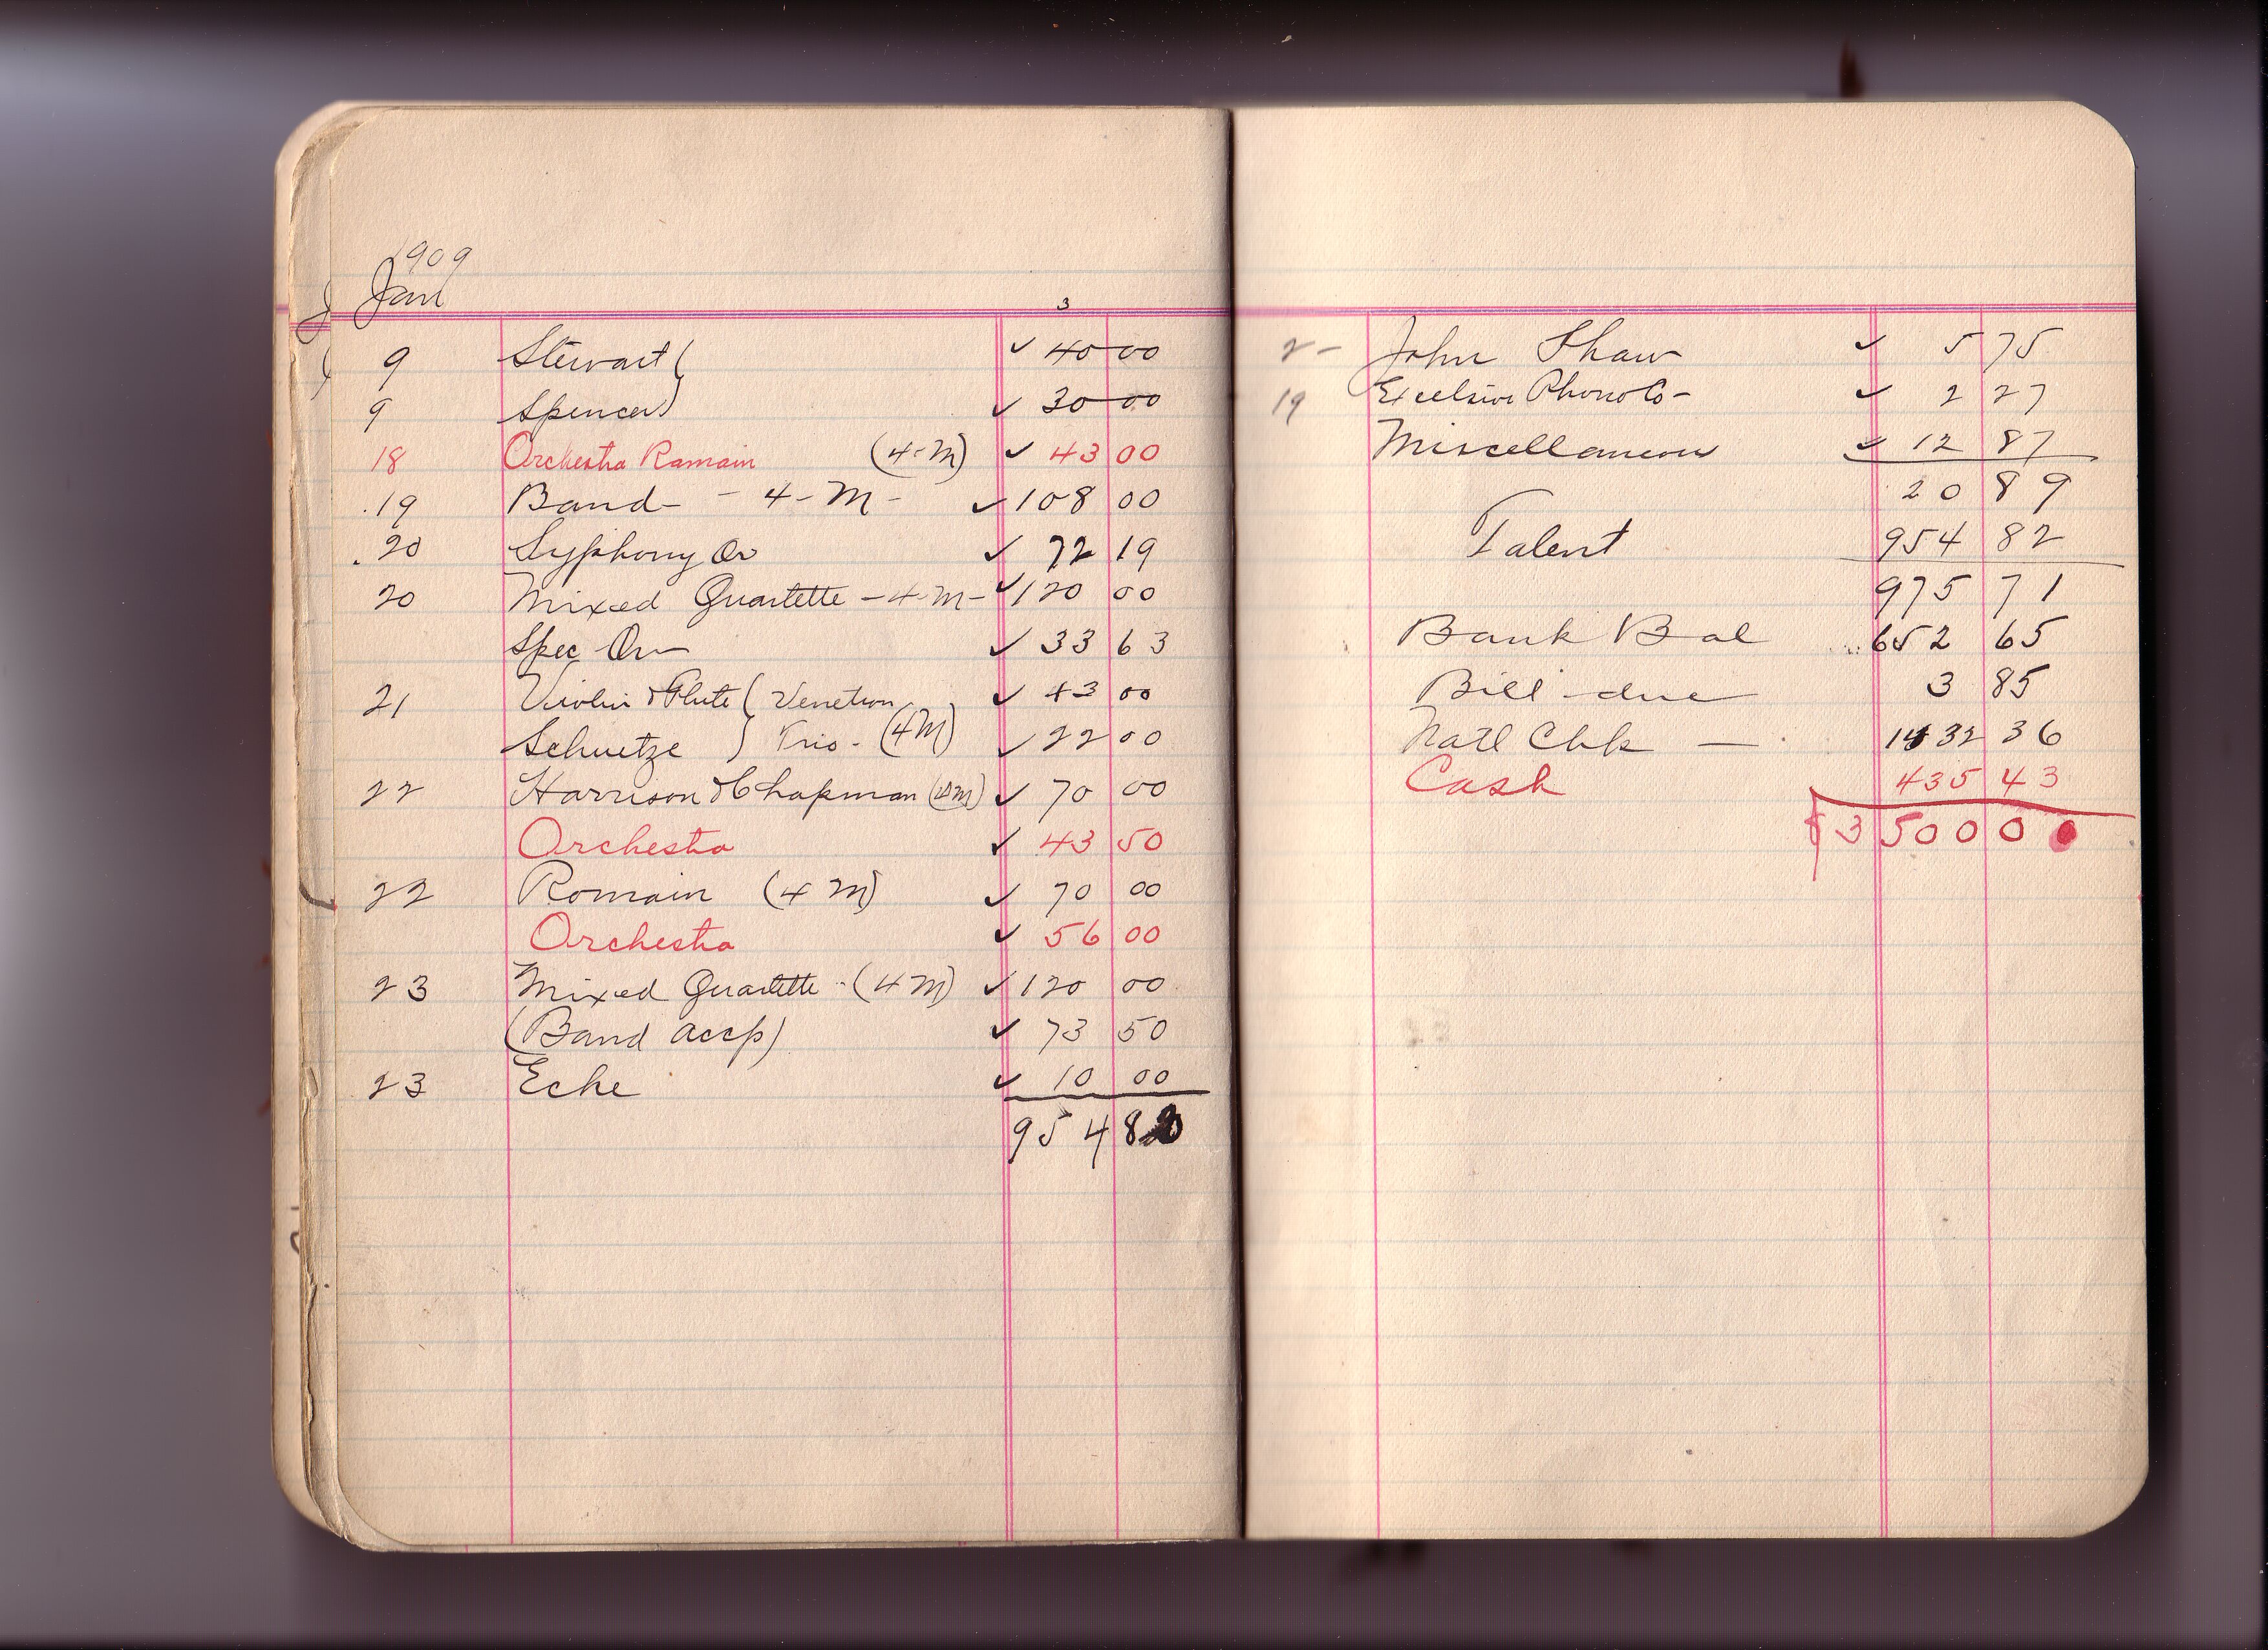 1909
Jan
3
9 Stewart ( ✓ 40 00
9 Spencer ) ✓ 30 00
18 Orchestra Ramain (4-M) ✓ 43 00
19 Band - 4-M- ✓ 108 00
20 Syphony Or ✓ 72 19
20 Mixed Quartette -4-M- ✓ 120 00
Spec Or ✓ 33 63
21 Violin & Flute ( Venetian ✓ 43 00
Schuetze ) Trio - (4M) ✓ 22 00
22 Harrison & Chapman (4M) ✓ 70 00
Orchestra ✓ 43 50
22 Romain (4 M) ✓ 70 00
Orchestra ✓ 56 00
23 Mixed Quartette - (4M) ✓ 120 00
(Band accp) ✓ 73 50
23 Eche ✓ 10 00
954 82
2- John Shaw ✓ 5 75
19 Excelsior Phono Co- ✓ 2 27
Miscellaneous ✓ 12 87
20 89
Talent 954 82
975 71
Bank Bal 652 65
Bill due 3 85
Natl Chk — 1432 36
Cash 435 43
3500 00